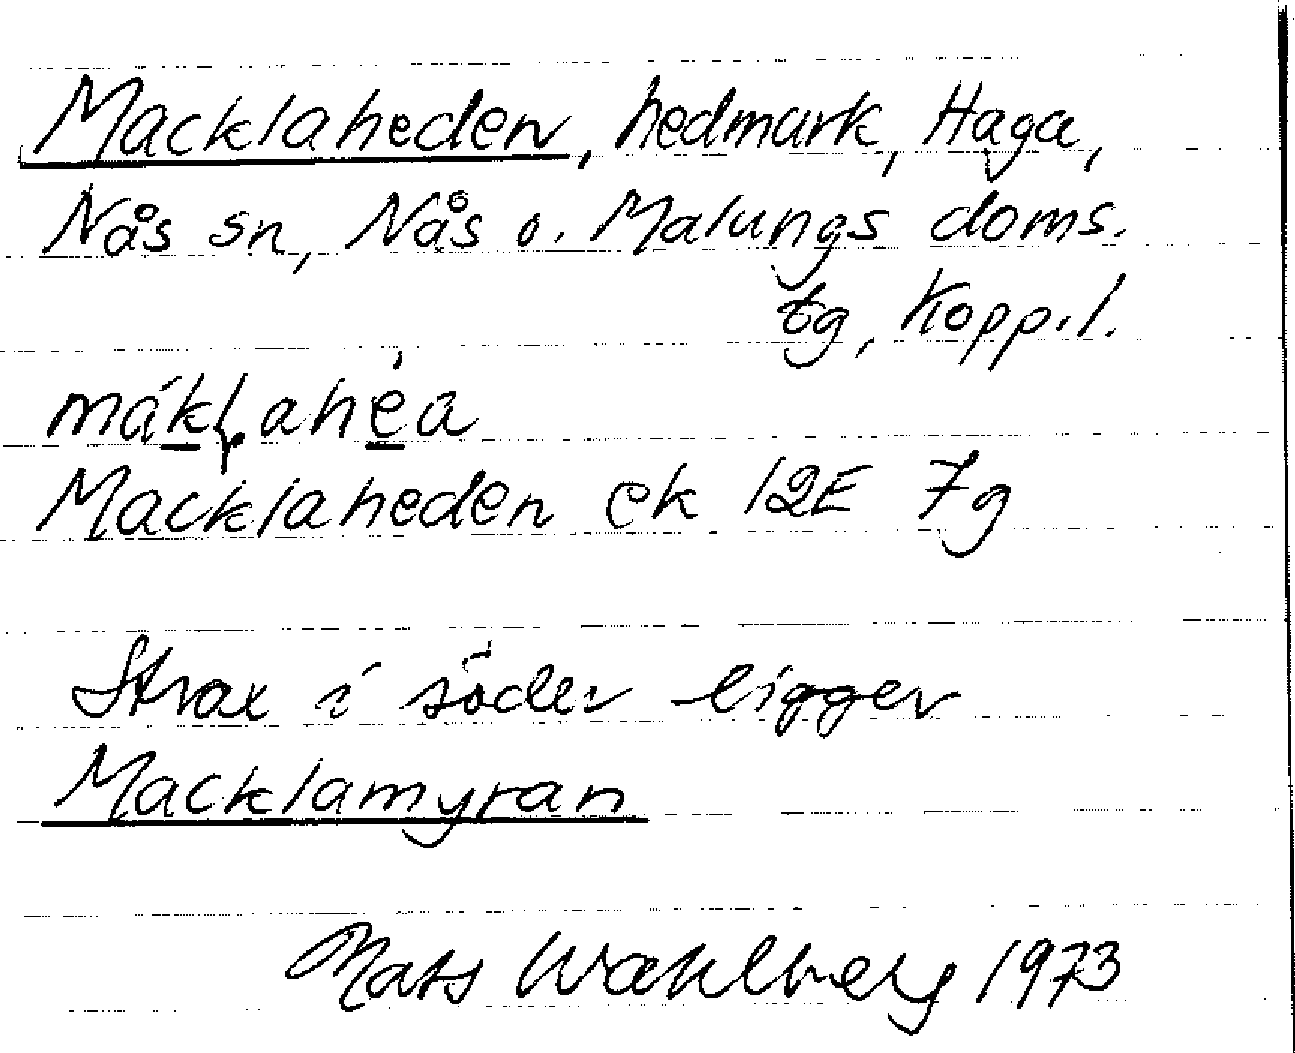 Macklaheden, hedmark, Haga,
Nås sn, Nås o. Malungs doms.
tg, Kopp.l.
mákḷahèa
Macklaheden ek 12E 7g
Strax i söder ligger
Macklamyran
Mats Wahlberg 1973